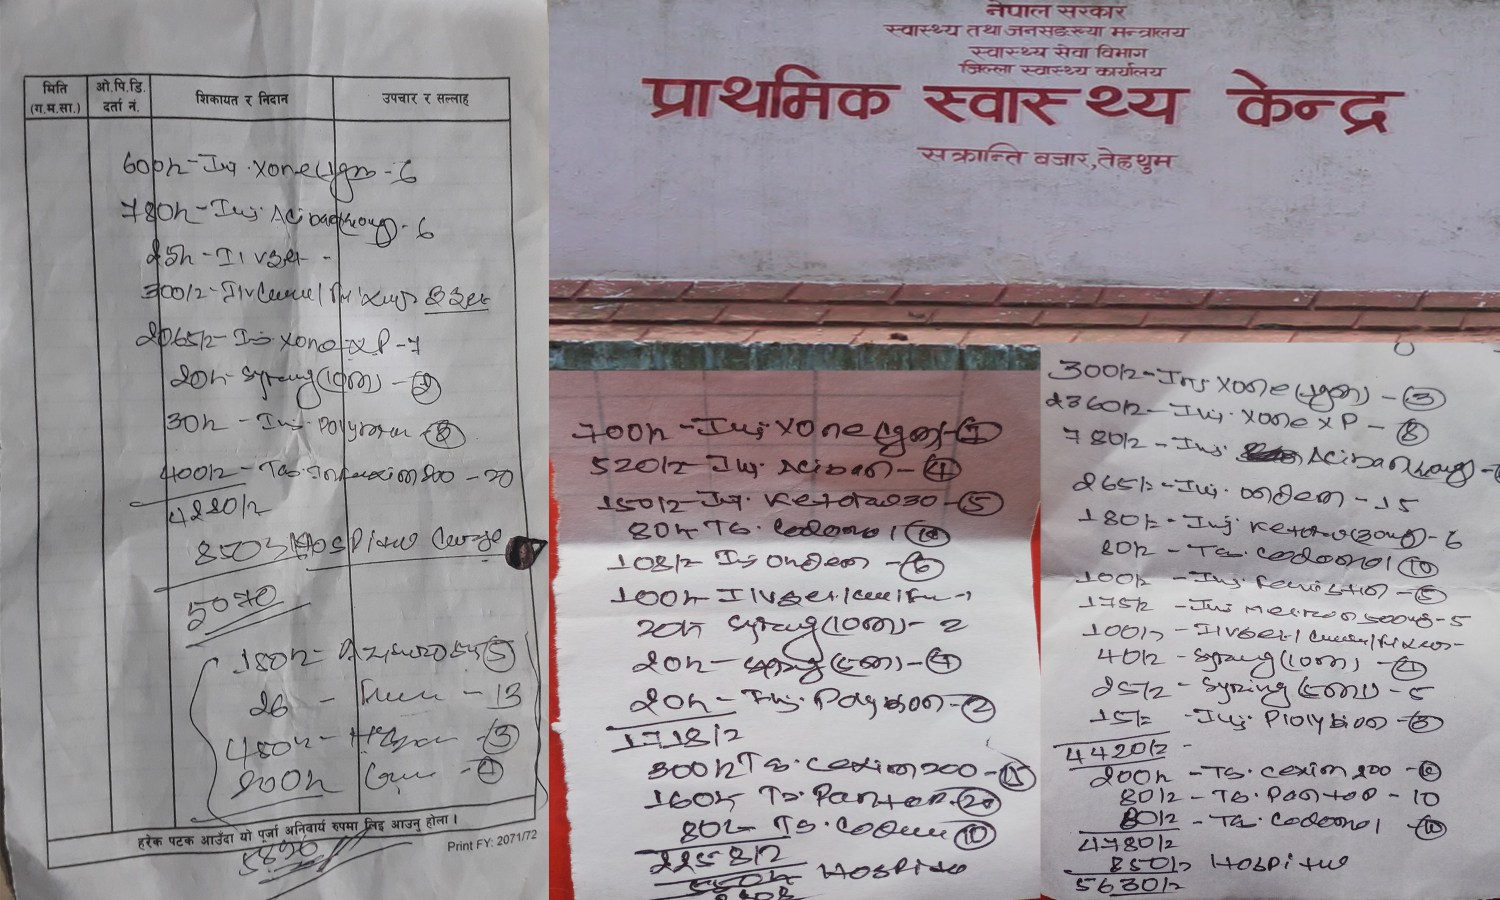 मिति
(ग.म.सा.)
ओ.पि.डि.
दर्ता नं.
शिकायत र निदान
उपचार र सल्लाह
600/- Inj. Xone (1gm) - 6
780/- Inj. Aciban - 6
25/- IV set -
300/-
2065/- Inj Xone XP - 7
20/- Syring (10ml) - 2
30/- Inj. Polybion
400/- Tab. 200 - 20
4220/-
850/- Hospital Carge
5070
180/-
26 - 13
480/- 3
200/-
हरेक पटक आउँदा यो पूर्जा अनिवार्य रुपमा लिइ आउनु होला ।
Print FY: 2071/72
नेपाल सरकार
स्वास्थ्य तथा जनसङख्या मन्त्रालय
स्वास्थ्य सेवा विभाग
जिल्ला स्वास्थ्य कार्यालय
प्राथमिक स्वास्थ्य केन्द्र
सक्रान्ति बजार,तेह्रथुम
700/- Inj Xone (1gm) - 7
520/- Inj. Aciban - 4
150/- Inj. Ketorac 30 - 5
80/- Tab. Codomol 10
108/- Inj Onden - 6
100/- IV set
20/- Syring (10ml) - 2
20/- Syring (5ml) - 4
20/- Inj. Polybion - 2
1718/-
300/- Tab. Cexim 200 - 15
160/- Tab. Pantop - 20
80/- Tab. 10
2258/-
550/- Hospital
300/- Inj Xone (1gm) - 3
2360/- Inj. Xone XP - 8
780/- Inj. Aciban
265/- Inj. Onden - 15
180/- Inj. Ketorac (30mg) - 6
80/- Tab. Codomol 10
100/- Inj. - 5
175/- Inj Metron 500mg - 5
100/- IV set
40/- Syring (10ml) - 4
25/- Syring (5ml) - 5
15/- Inj. Polybion
4420/-
200/- Tab. Cexim 200
80/- Tab. Pantop - 10
80/- Tab. Codomol 10
4780/-
850/- Hospital
5630/-